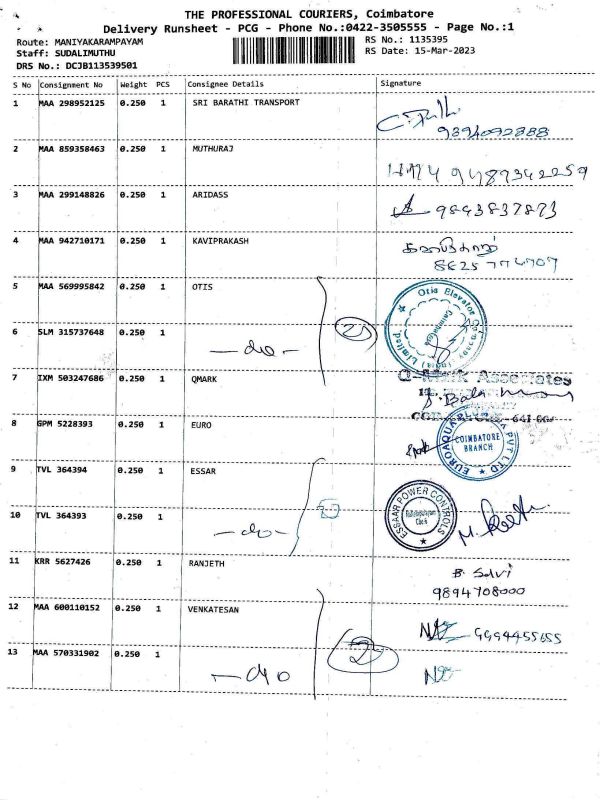 THE PROFESSIONAL COURIERS, Coimbatore
Delivery Runsheet - PCG - Phone No.:0422-3505555 - Page No.:1
Route: MANIYAKARAMPAYAM
Staff: SUDALIMUTHU
DRS No.: DCJB113539501
RS No.: 1135395
RS Date: 15-Mar-2023
S No Consignment No Weight PCS Consignee Details Signature
1 MAA 298952125 0.250 1 SRI BARATHI TRANSPORT
9894092888
2 MAA 859358463 0.250 1 MUTHURAJ
9487342259
3 MAA 299148826 0.250 1 ARIDASS
9843837873
4 MAA 942710171 0.250 1 KAVIPRAKASH
5 MAA 569995842 0.250 1 OTIS
Otis Elevator Company (India) Limited
Coimbatore
6 SLM 315737648 0.250 1 -do-
7 IXM 503247686 0.250 1 QMARK
Q-Mark Associates
8 GPM 5228393 0.250 1 EURO
COIMBATORE BRANCH
9 TVL 364394 0.250 1 ESSAR
ESSAAR POWER CONTROLS
10 TVL 364393 0.250 1 -do-
11 KRR 5627426 0.250 1 RANJETH B. Selvi
9894708000
12 MAA 600110152 0.250 1 VENKATESAN
13 MAA 570331902 0.250 1 -do
2